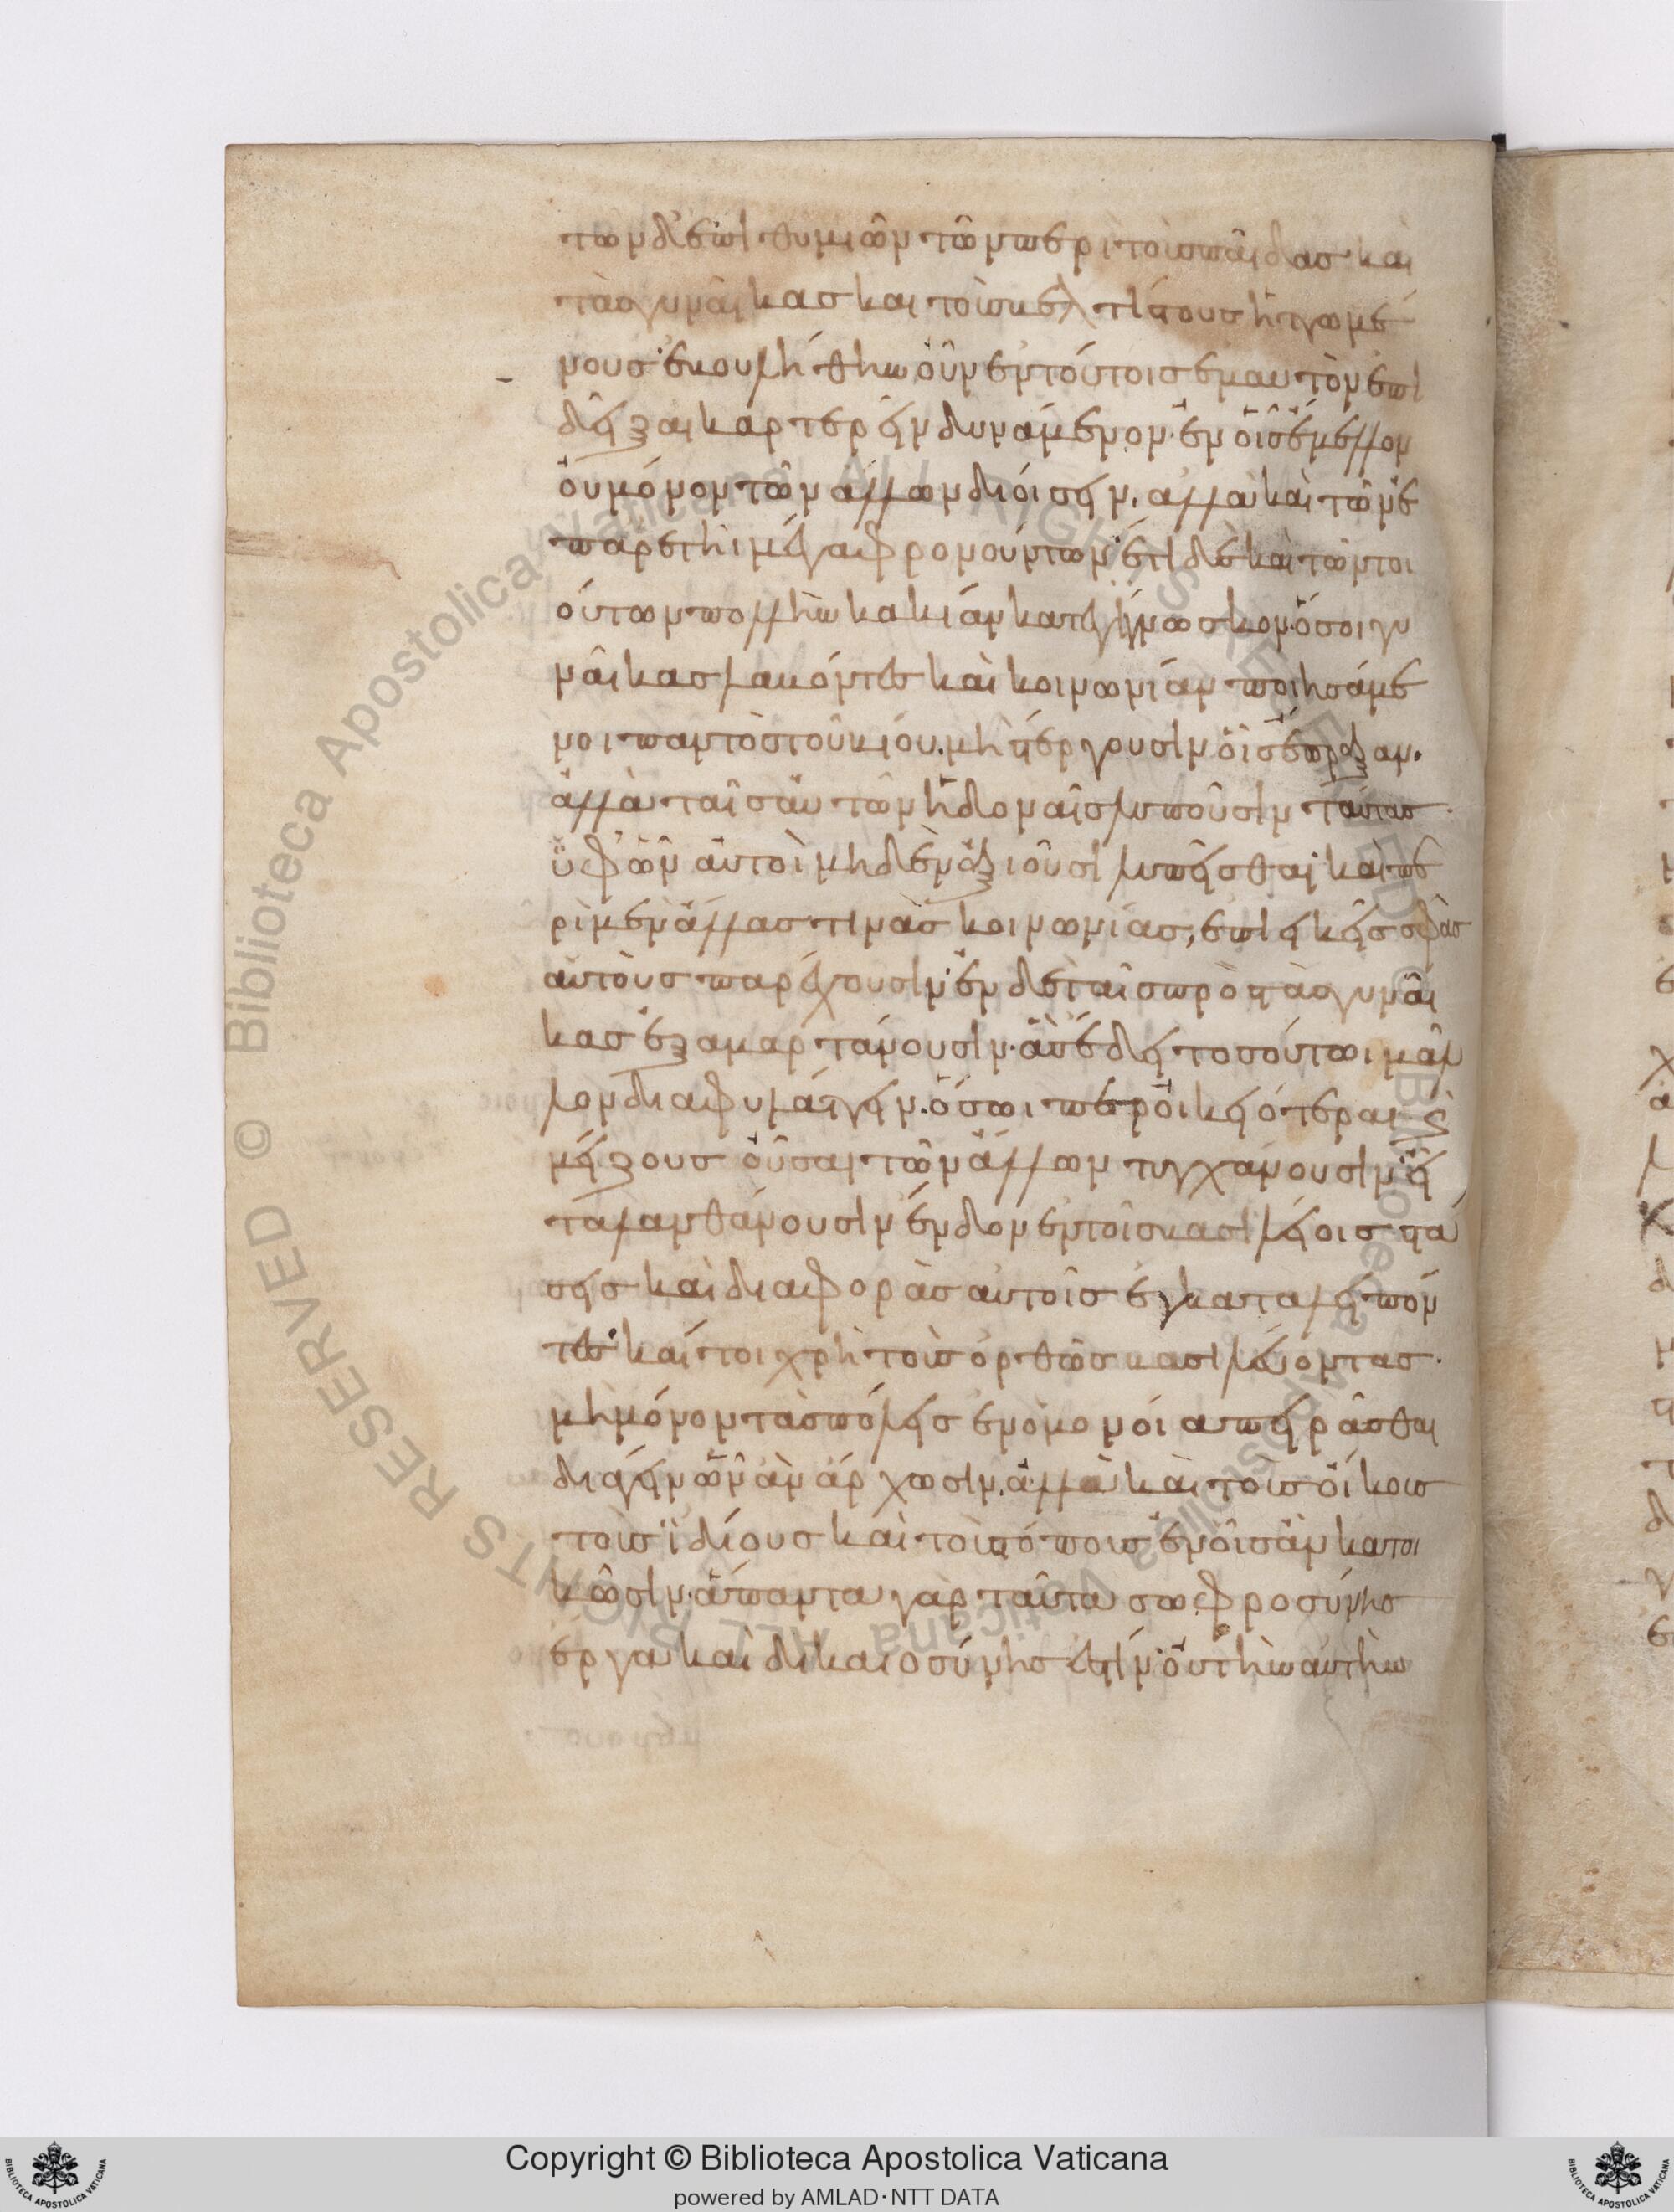 των δ' ἐπιθυμιῶν τῶν περὶ τοὺς παῖδας καὶ
τὰς γυναῖκας καὶ τοὺς βελτίστους ἡττωμέ
νους· ἐβουλήθην οὖν ἐν τούτοις ἐμαυτὸν ἐπι
δεῖξαι καρτερεῖν δυνάμενον· ἐν οἷς ἔμελλον
οὐ μόνον τῶν ἄλλων διοίσειν, ἀλλὰ καὶ τῶν ἐ
π' ἀρετῆι μέγα φρονούντων· ἔτι δὲ καὶ τῶν τοι
ούτων πολλὴν κακίαν κατεγίγνωσκον· ὅσοι γυ
ναῖκας λαβόντες καὶ κοινωνίαν ποιησάμε
νοι παντὸς τοῦ βίου. μὴ στέργουσιν οἷς ἔπραξαν.
ἀλλὰ ταῖς αὑτῶν ἡδοναῖς λυποῦσιν ταύτας
ὑφ' ὧν αὐτοὶ μηδὲν ἀξιοῦσι λυπεῖσθαι· καὶ πε
ρὶ μὲν ἄλλας τινὰς κοινωνίας, ἐπιεικεῖς σφᾶς
αὐτοὺς παρέχουσιν· ἐν δὲ ταῖς πρὸς τὰς γυναῖ
κας ἐξαμαρτάνουσιν. ἃς ἔδει τοσούτωι μᾶλ
λον διαφυλάττειν. ὅσωι περ οἰκειότεραι καὶ
μείζους οὖσαι τῶν ἄλλων τυγχάνουσιν· εἶ
τα λανθάνουσιν ἔνδον ἐν τοῖς βασιλείοις στά
σεις καὶ διαφορὰς αὑτοῖς ἐγκαταλείπον
τες· καίτοι χρὴ τοὺς ὀρθῶς βασιλεύοντας
μὴ μόνον τὰς πόλεις ἐν ὁμονοίᾳ πειρᾶσθαι
διάγειν ὧν ἂν ἄρχωσιν, ἀλλὰ καὶ τοὺς οἴκους
τοὺς ἰδίους καὶ τοὺς τόπους ἐν οἷς ἂν κατοι
κῶσιν· ἅπαντα γὰρ ταῦτα σωφροσύνης
ἔργα καὶ δικαιοσύνης ἐστίν· οὐ τὴν αὐτὴν
Copyright © Biblioteca Apostolica Vaticana
powered by AMLAD·NTT DATA